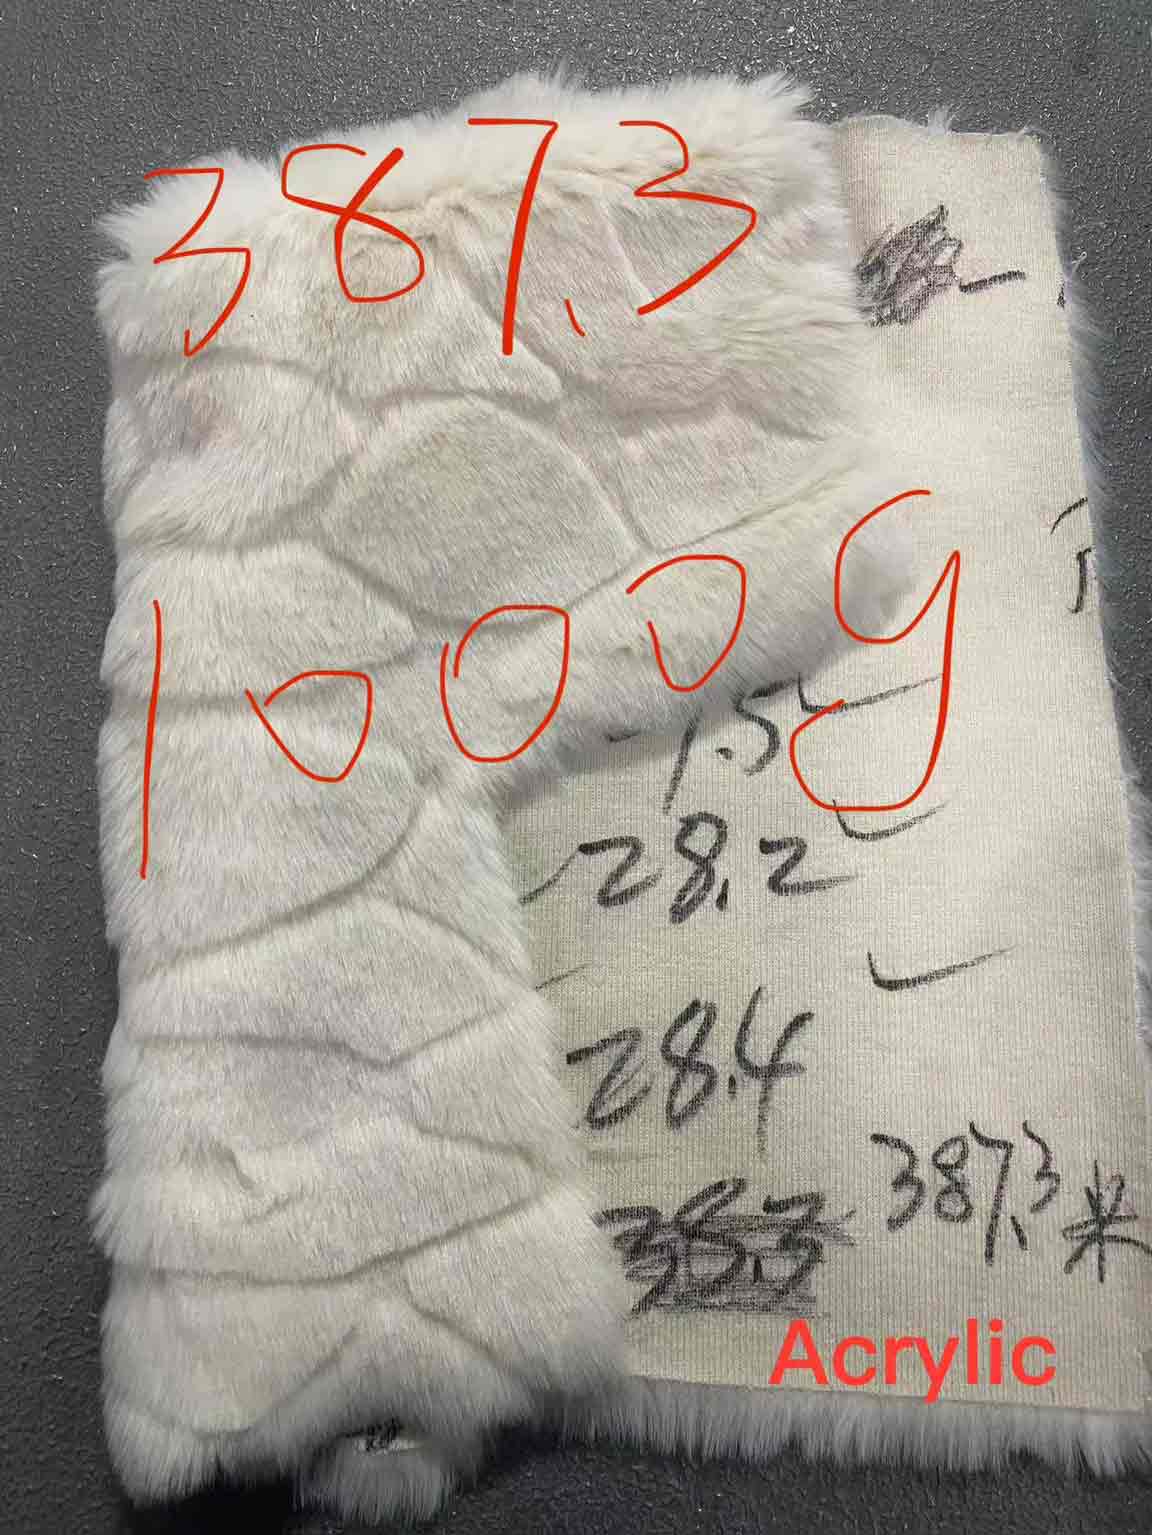 387.3
1000g
28.2
28.4
387.3米
Acrylic